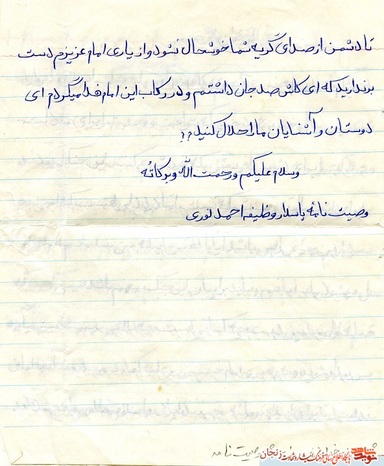 تا دشمن از صدای گریه شما خوشحال نشود و از یاری امام عزیزم دست
برندارید که ای کاش صد جان داشتم و در رکاب این امام فدا میکردم ای
دوستان و آشنایان ما را حلال کنید ؟؟
وسلام علیکم و رحمت الله و برکاته
وصیت نامه پاسدار وظیفه احمد نوری
وصیت نامه
نوید شاهد زنجان